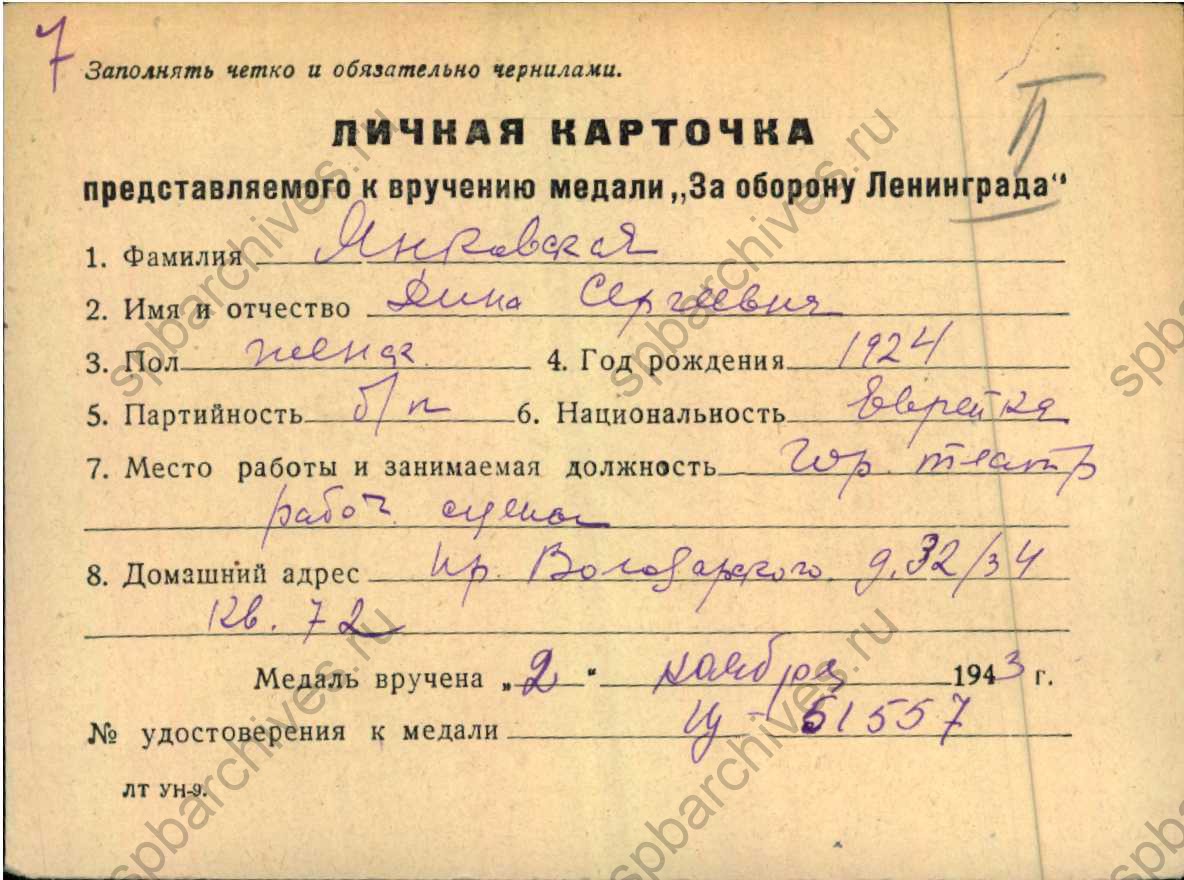 7
Заполнять четко и обязательно чернилами.
II
ЛИЧНАЯ КАРТОЧКА
представляемого к вручению медали „За оборону Ленинграда“
1. Фамилия Янковская
2. Имя и отчество Дина Сергеевна
3. Пол женск. 4. Год рождения 1924
5. Партийность б/п 6. Национальность Еврейка
7. Место работы и занимаемая должность Гор. театр
рабоч. сцены
8. Домашний адрес пр. Володарского д. 32/34
кв. 72
Медаль вручена „2“ ноября 1943 г.
№ удостоверения к медали Ц - 51557
ЛТ УН-9.
spbarchives.ru